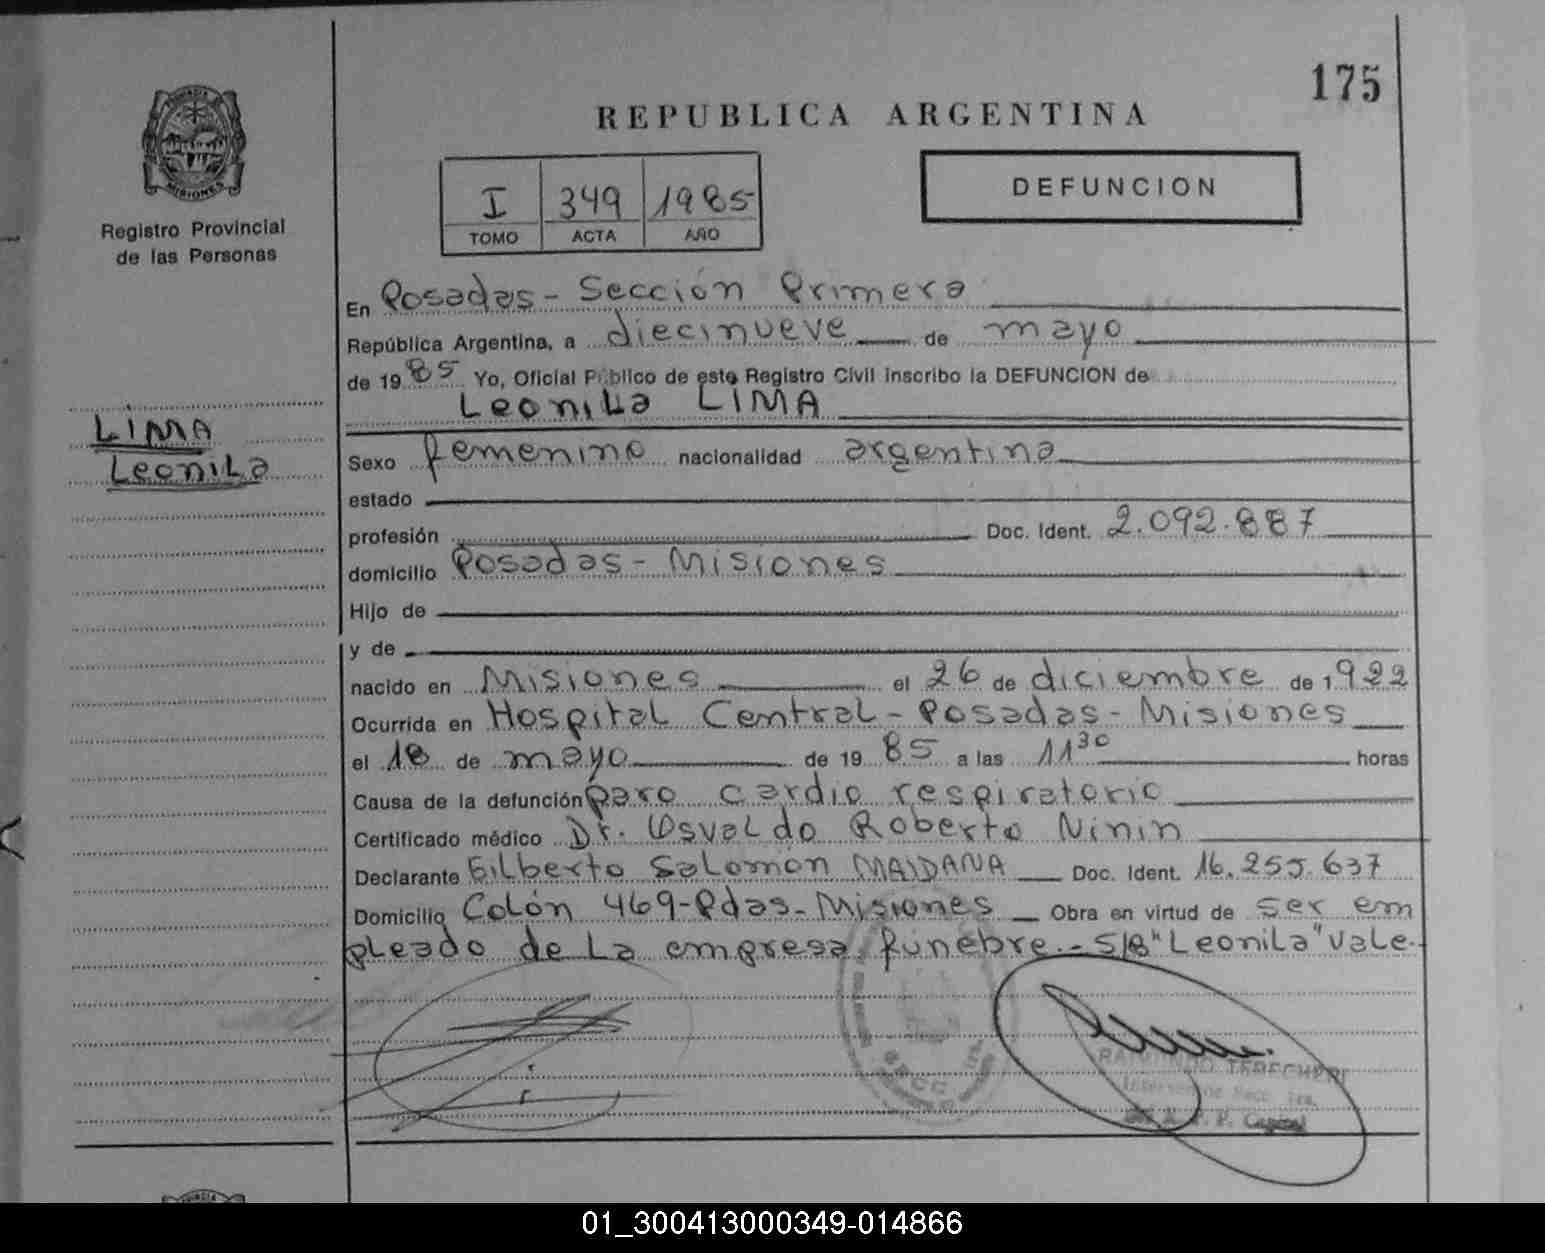 175
REPUBLICA ARGENTINA
PROVINCIA DE
MISIONES
Registro Provincial
de las Personas
I 349 1985
TOMO ACTA AÑO
DEFUNCION
En Posadas - Sección Primera
República Argentina, a diecinueve de mayo
de 1985 Yo, Oficial Público de este Registro Civil inscribo la DEFUNCION de
Leonila LIMA
LIMA
Leonila
Sexo femenino nacionalidad argentina
estado
profesión Doc. Ident. 2.092.887
domicilio Posadas - Misiones
Hijo de
y de
nacido en Misiones el 26 de diciembre de 1922
Ocurrida en Hospital Central - Posadas - Misiones
el 18 de mayo de 1985 a las 11 30 horas
Causa de la defunción paro cardio respiratorio
Certificado médico Dr. Osvaldo Roberto Ninin
Declarante Gilberto Salomon MAIDANA Doc. Ident. 16.255.637
Domicilio Colón 469 - Pdas - Misiones Obra en virtud de ser em
pleado de la empresa fúnebre. - S/B "Leonila" Vale.
SECC. 1ra.
TERECHERI
Secc. 1ra.
R. P. P. Capital
01_300413000349-014866